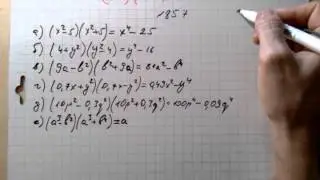 857
а) (x²-5)(x²+5)=x⁴-25
б) (4+y²)(y²-4)=y⁴-16
в) (9a-b²)(b²+9a)=81a²-b⁴
г) (0,7x+y²)(0,7x-y²)=0,49x²-y⁴
д) (10p²-0,3q²)(10p²+0,3q²)=100p⁴-0,09q⁴
е) (a³-b²)(a³+b²)=a